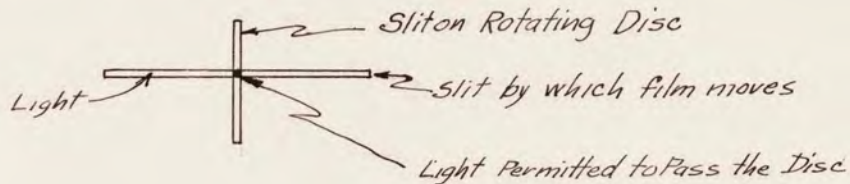 Sliton Rotating Disc
Light
Slit by which film moves
Light Permitted to Pass the Disc